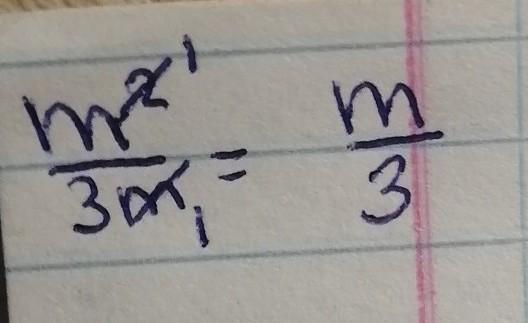 m² ¹ / 3m ₁ = m / 3